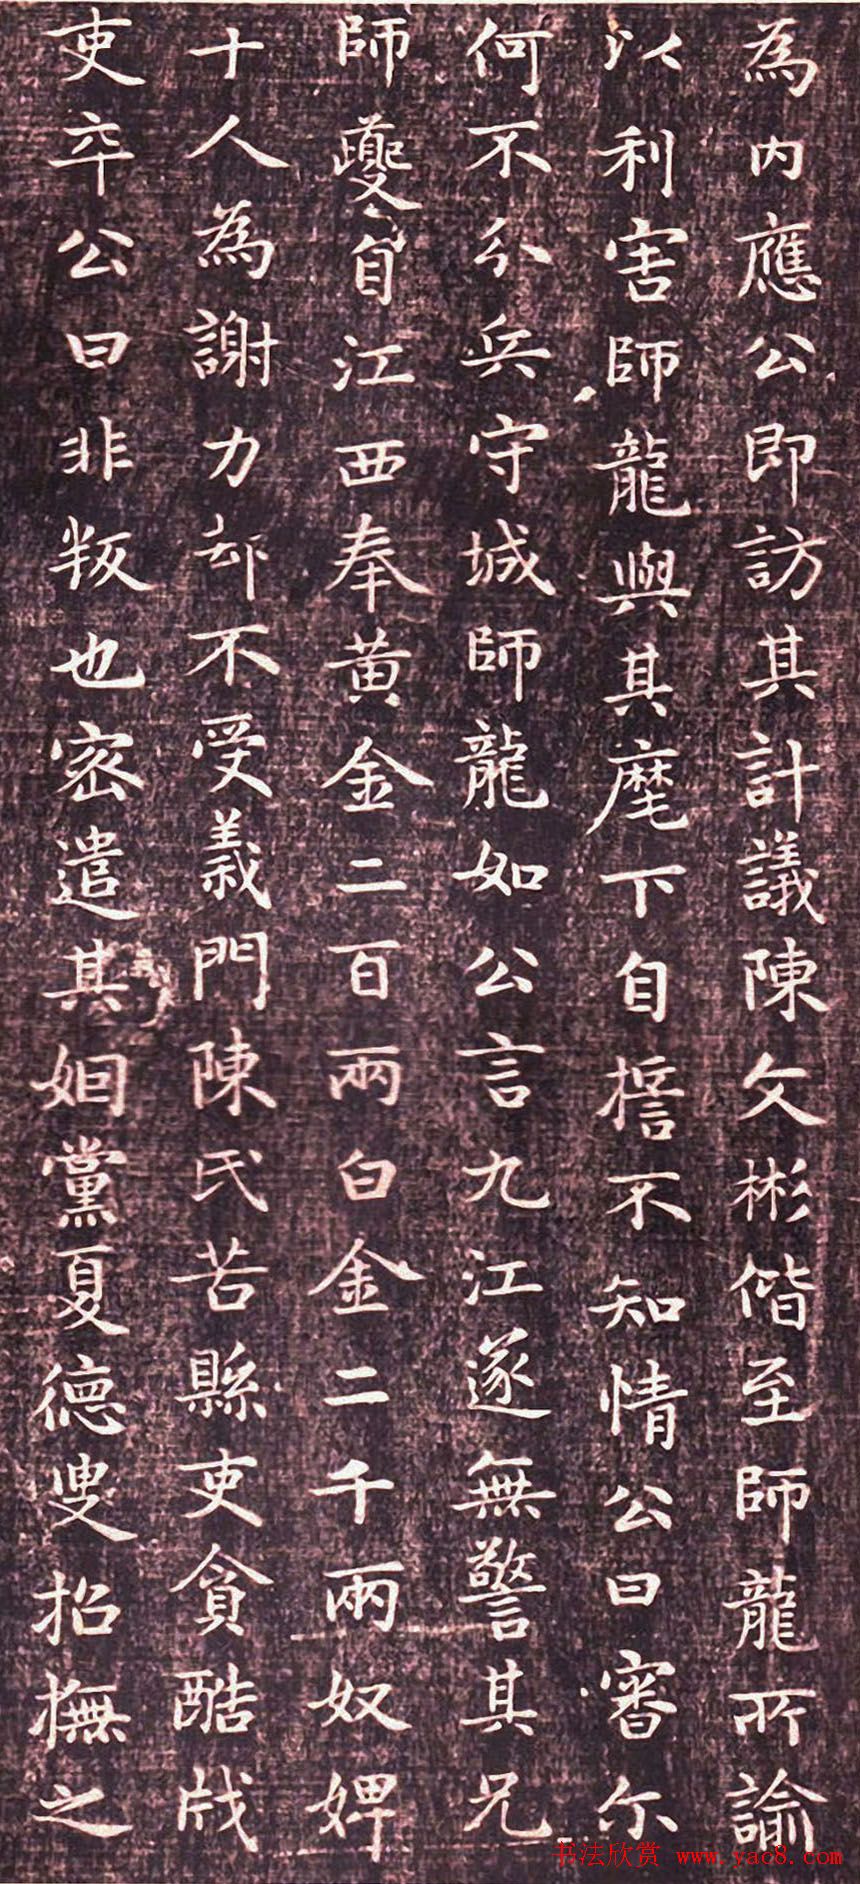 為內應公即訪其計議陳文彬偕至師龍所諭
以利害師龍與其麾下自誓不知情公曰審尔
何不分兵守城師龍如公言九江遂無警其兄
師夔自江西奉黃金二百兩白金二千兩奴婢
十人為謝力却不受義門陳氏苦縣吏貪酷戕
吏卒公曰非叛也密遣其姻黨夏德叟招撫之
书法欣赏 www.yac8.com